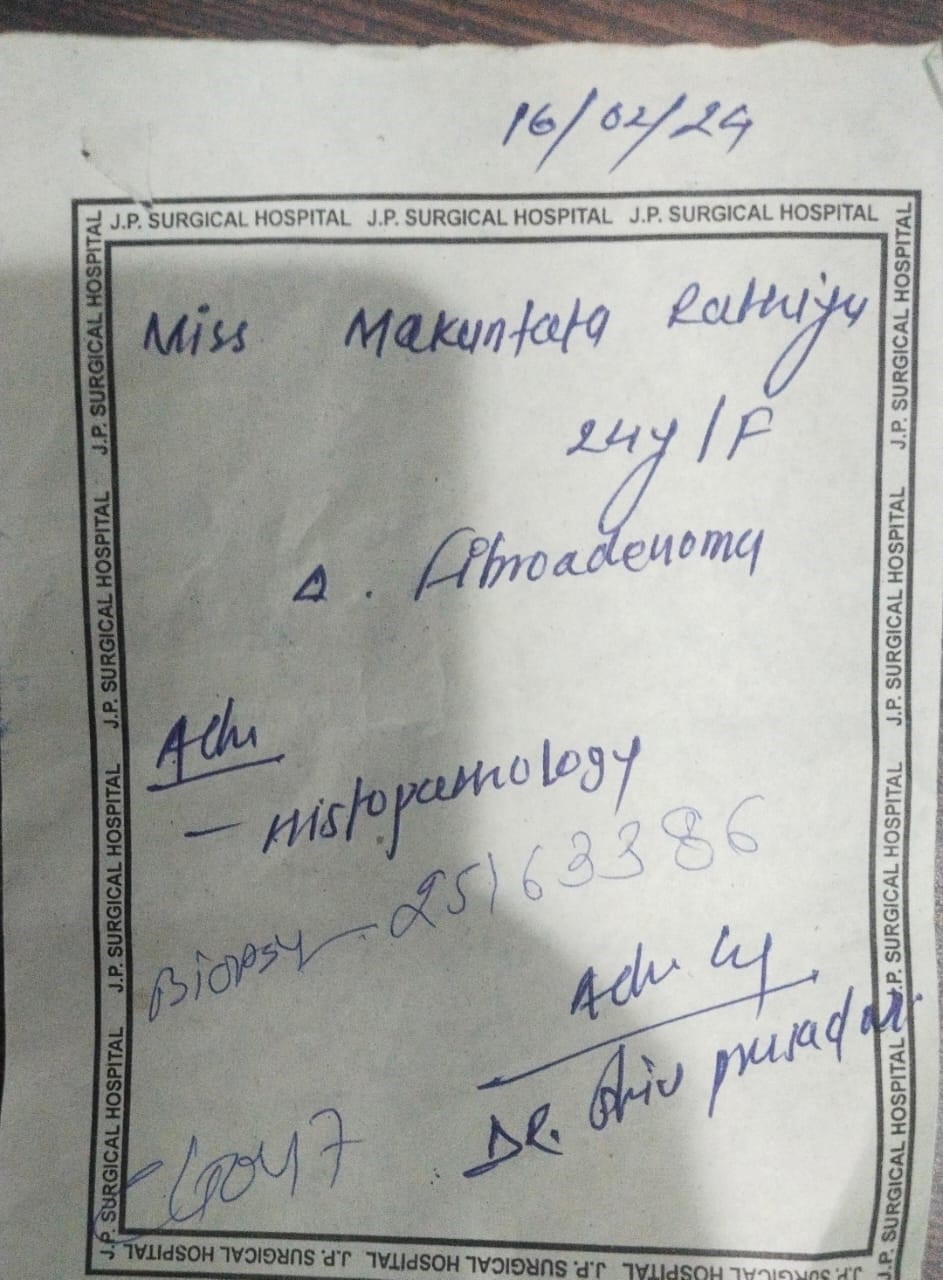 16/02/24
J.P. SURGICAL HOSPITAL J.P. SURGICAL HOSPITAL J.P. SURGICAL HOSPITAL
Miss Makuntata Rathiya
24y/F
Δ. fibroadenoma
Adv
- Histopathology
Biopsy - 25163386
Adv by
DR. Shiv prasad
J.P. SURGICAL HOSPITAL J.P. SURGICAL HOSPITAL J.P. SURGICAL HOSPITAL J.P. SURGICAL HOSPITAL
J.P. SURGICAL HOSPITAL J.P. SURGICAL HOSPITAL J.P. SURGICAL HOSPITAL J.P. SURGICAL HOSPITAL
J.P. SURGICAL HOSPITAL J.P. SURGICAL HOSPITAL J.P. SURGICAL HOSPITAL